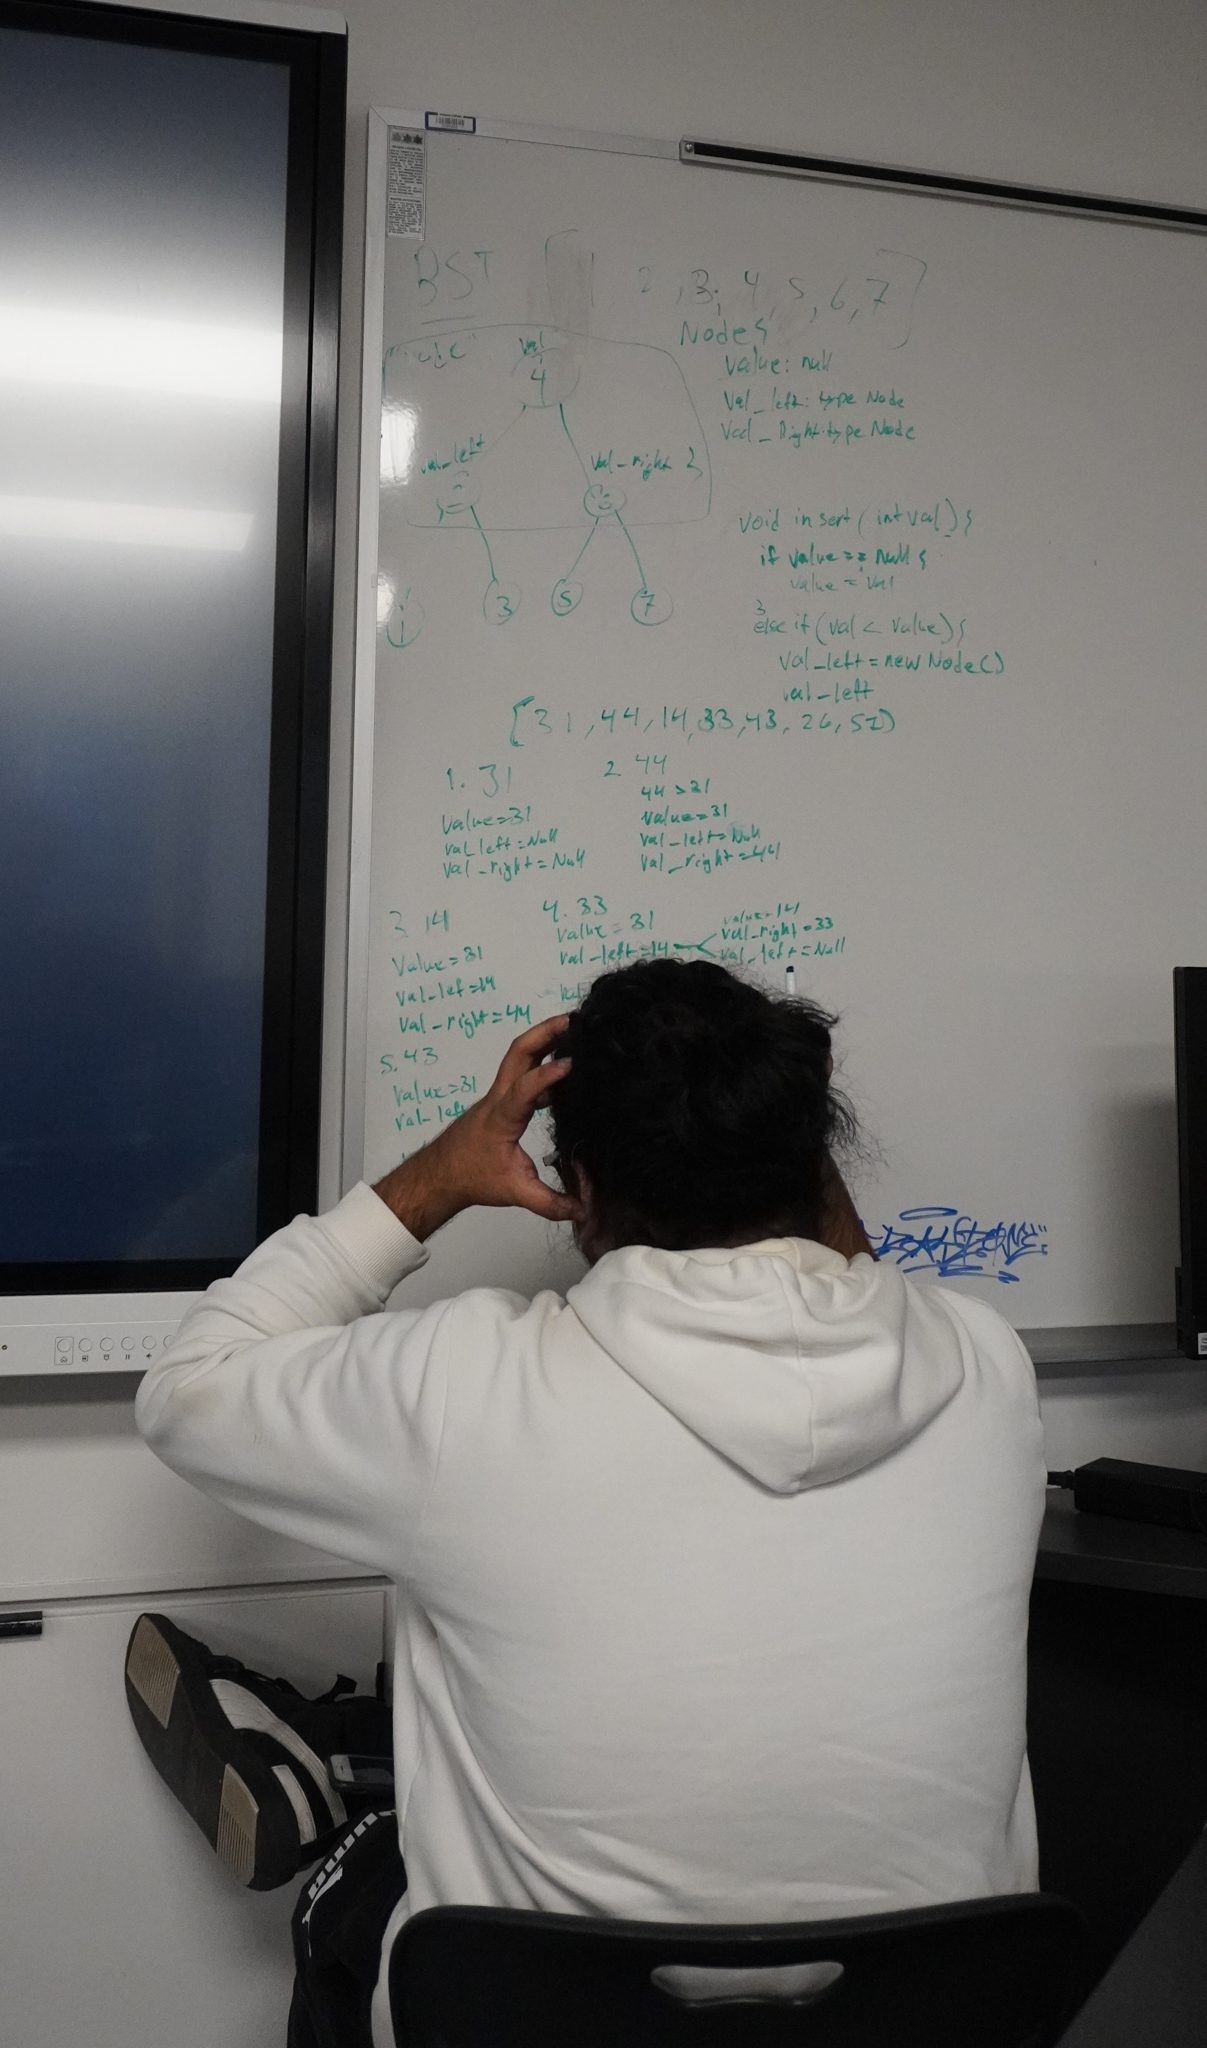 BST [1, 2, 3, 4, 5, 6, 7]
Node {
value: null
Val_left: type Node
Val_Right: type Node
val
4
val_left
val_right }
1
3
5
7
void insert (int val) {
if value == null {
value = val
}
else if (val < value) {
val_left = new Node()
val_left
[31, 44, 14, 33, 43, 26,
1. 31
Value=31
val_left = Null
val_right = Null
2. 44
44 > 31
Value=31
val_left = Null
Val_right = 44
3. 14
Value=31
val_lef=14
Val_right=44
4. 33
Value = 31
val_left=14
value=14
val_right = 33
val_left = Null
5. 43
Value=31
val_left
PUMA